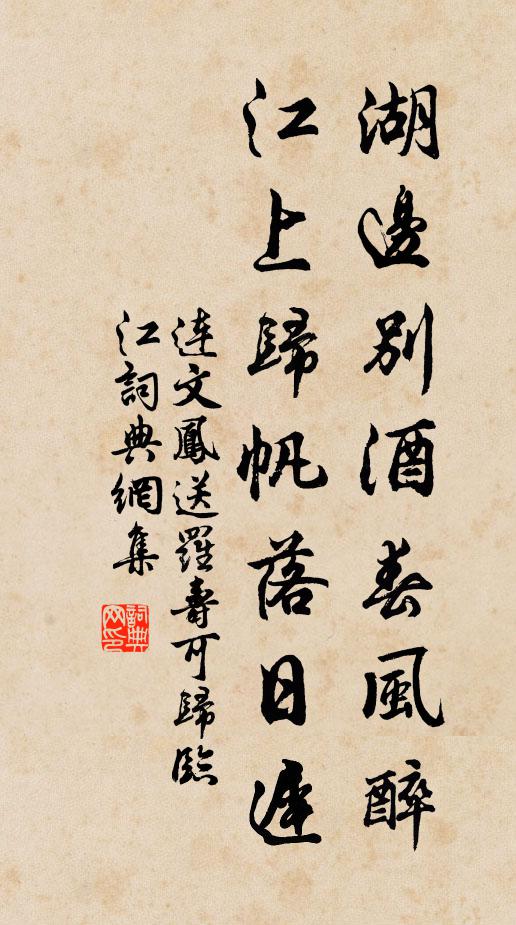 湖邊別酒春風醉
江上歸帆落日遲
連文鳳送羅壽可歸臨
江詞典網集
詞典网印